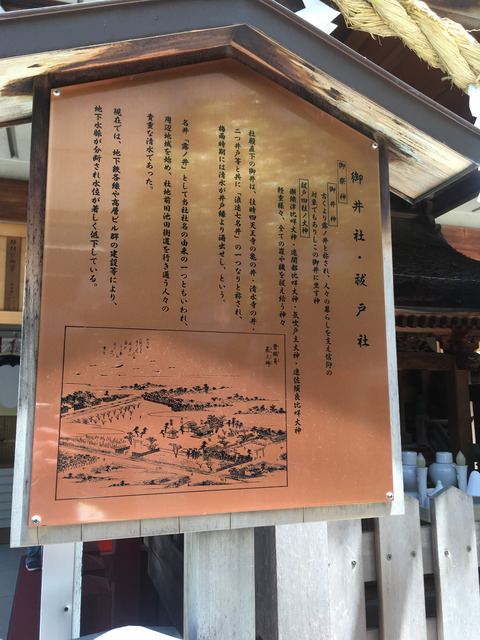 御井社・祓戸社
御祭神
御井神
古くより露ノ井と称され、人々の暮らしを支え信仰の
対象でもありしこの御井に坐す神
祓戸四柱ノ大神
瀬織津比咩大神・速開都比咩大神・気吹戸主大神・速佐須良比咩大神
軽重様々、全ての罪や穢を祓え給う神々
社殿直下の御井は、往時四天王寺の亀の井・清水寺の井・
二つ井戸等と共に「浪速七名井」の一つなりと称され、
梅雨時期には清水が井戸縁より湧出せし、という。
名井「露ノ井」として当社社名の由来の一つともいわれ、
周辺地域を始め、社地前旧池田街道を行き通う人々の
貴重な清水であった。
現在では、地下鉄各線や高層ビル群の建設等により、
地下水脈が分断され水位が著しく低下している。